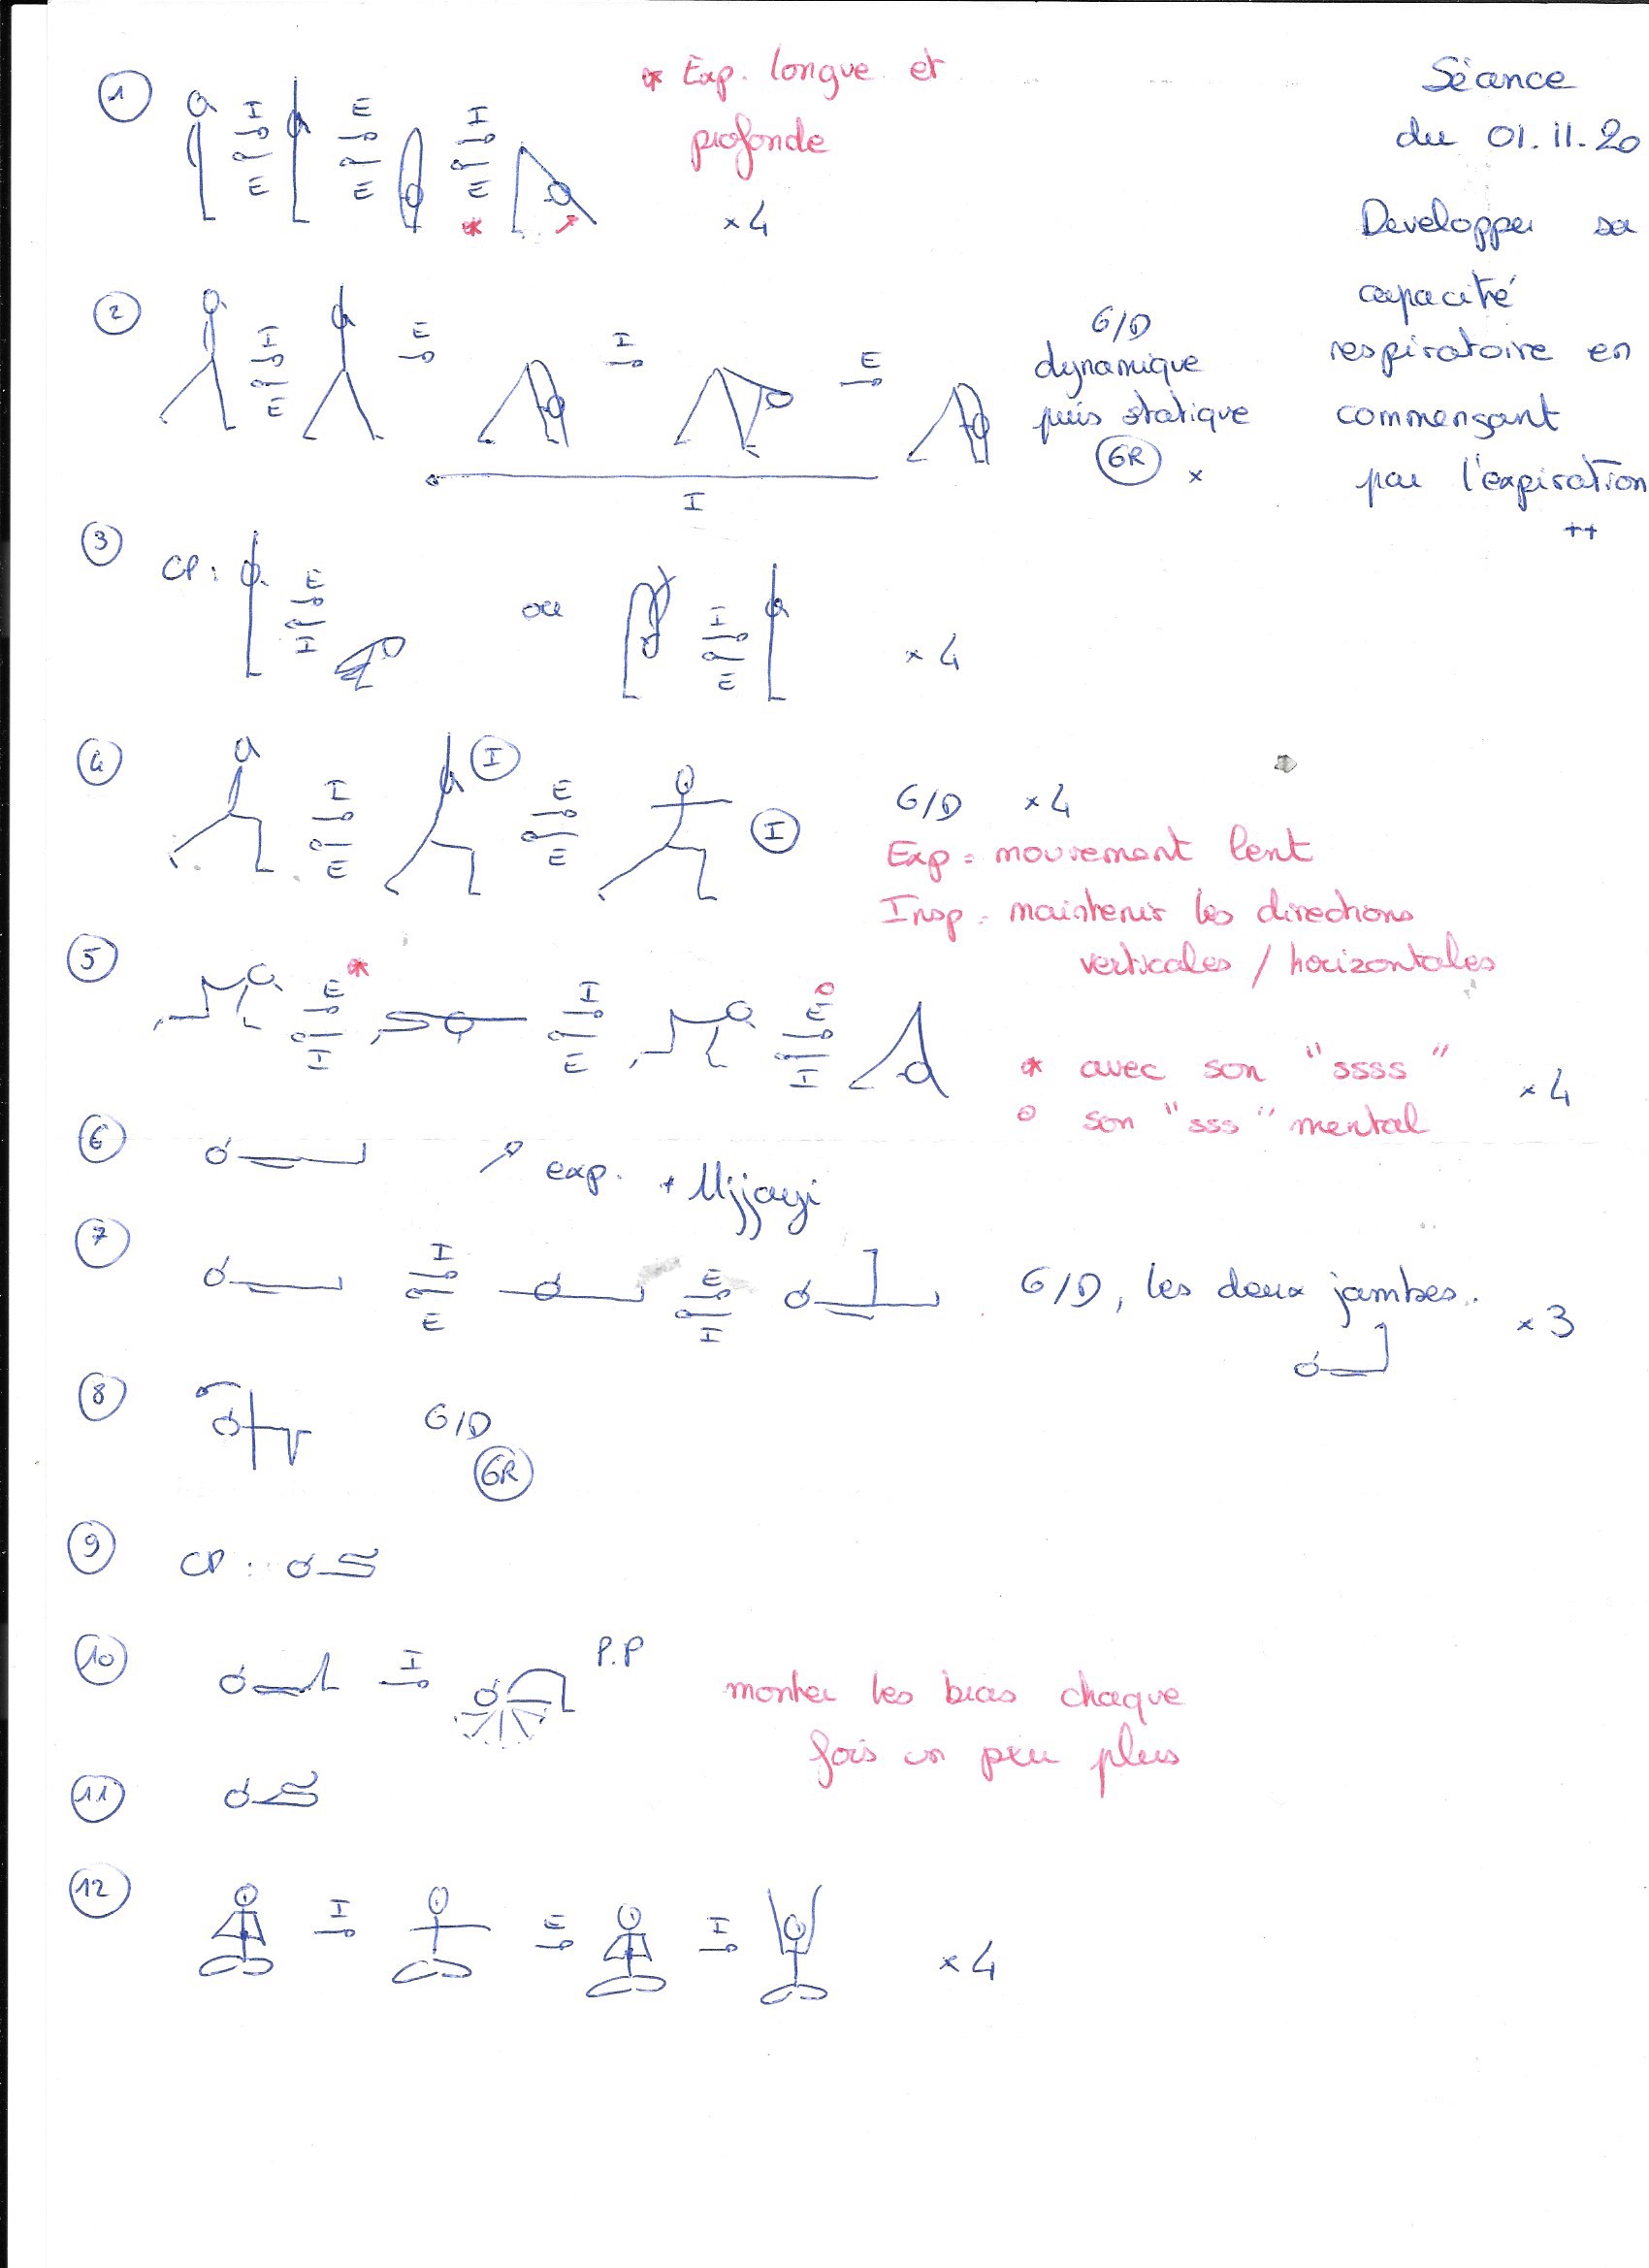 Séance
du 01.11.20
Developper sa
capacité
respiratoire en
commençant
par l'expiration
++
① I E I
E E E
* Exp. longue et
profonde
× 4
② I E I E
E
I
G/D
dynamique
puis statique
6R ×
③ CP : E ou I × 4
I E
④ I I E I
E E
G/D × 4
Exp = mouvement lent
Insp = maintenir les directions
verticales / horizontales
⑤ E * I E o
I E I
* avec son "ssss" × 4
o son "sss" mental
⑥ exp. + Ujjayi
⑦ I E G/D, les deux jambes.
E I × 3
⑧ G/D
6R
⑨ CP :
⑩ I P.P
monter les bras chaque
fois un peu plus
⑪
⑫ I E I × 4